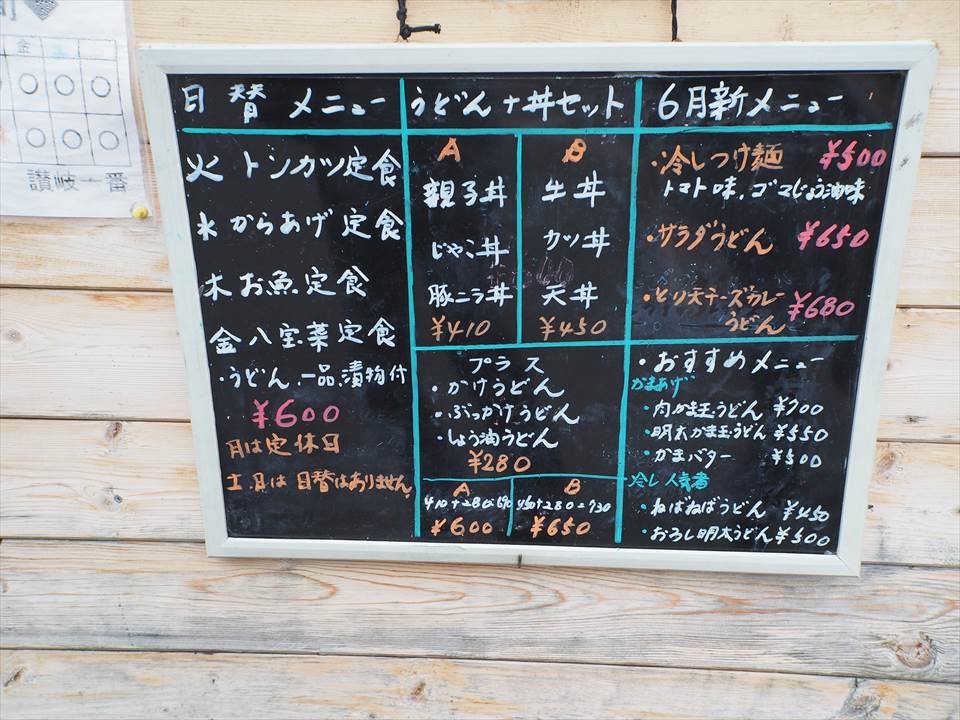 金
讃岐一番
日替メニュー
火 トンカツ定食
水 からあげ定食
木 お魚定食
金 八宝菜定食
・うどん、一品、漬物付
¥600
月は定休日
土.日は日替はありません。
うどん+丼セット
A
親子丼
じゃこ丼
豚ニラ丼
¥410
B
牛丼
カツ丼
天丼
¥450
プラス
・かけうどん
・ぶっかけうどん
・しょう油うどん
¥280
A
410+280=690
¥600
B
450+280=730
¥650
6月新メニュー
・冷しつけ麺 ¥500
トマト味、ゴマじょう油味
・サラダうどん ¥650
・とり天チーズカレー
うどん ¥680
・おすすめメニュー
かまあげ
・肉かま玉うどん ¥700
・明太かま玉うどん ¥550
・かまバター ¥500
冷し人気者
・ねばねばうどん ¥450
・おろし明太うどん ¥500